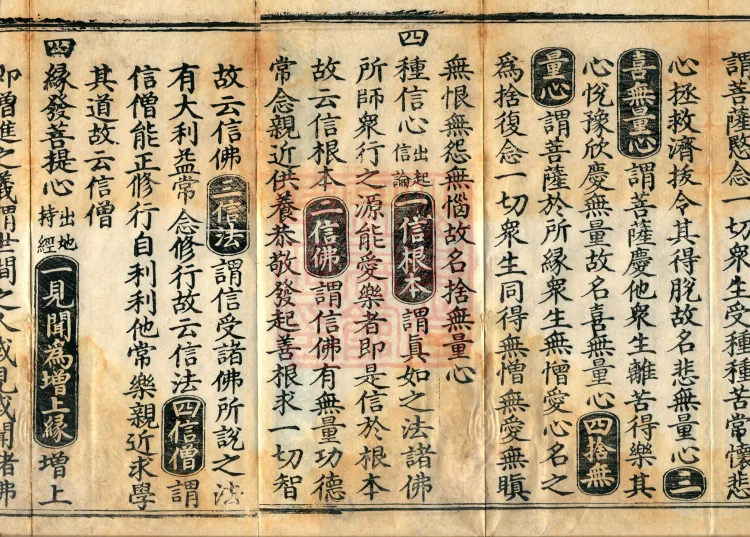 謂菩薩愍念一切衆生受種種苦常懷悲
心拯救濟拔令其得脫故名悲無量心三
喜無量心謂菩薩慶他衆生離苦得樂其
心悅豫欣慶無量故名喜無量心四捨無
量心謂菩薩於所緣衆生無憎愛心名之
爲捨復念一切衆生同得無憎無愛無瞋
無恨無怨無惱故名捨無量心
四種信心出起信論一信根本謂眞如之法諸佛
所師衆行之源能愛樂者即是信於根本
故云信根本二信佛謂信佛有無量功德
常念親近供養恭敬發起善根求一切智
故云信佛三信法謂信受諸佛所說之法
有大利益常念修行故云信法四信僧謂
信僧能正修行自利利他常樂親近求學
其道故云信僧
四緣發菩提心出地持經一見聞為增上緣增上
即增進之義謂世間之人或見或聞諸佛